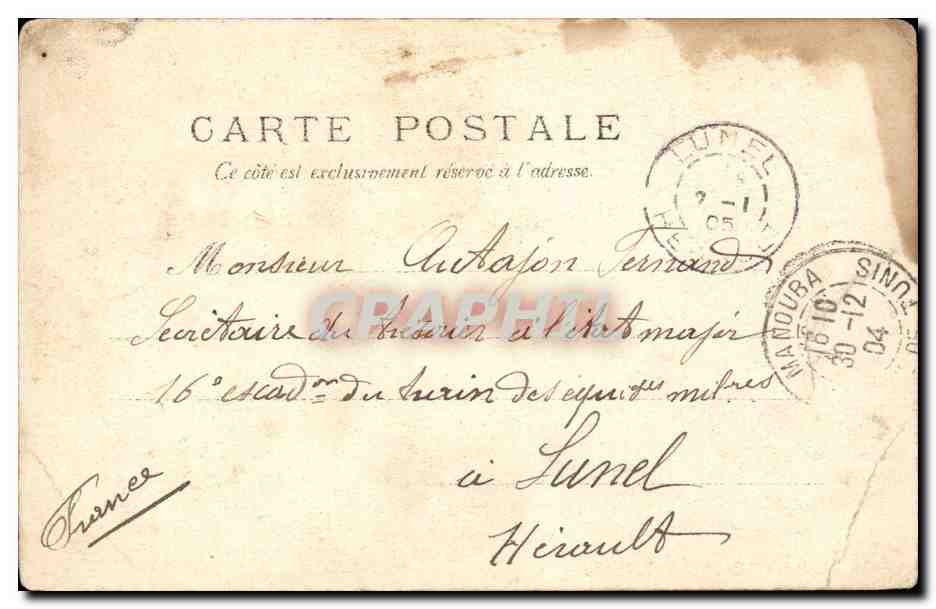 CARTE POSTALE
Ce côté est exclusivement réservé à l'adresse.
LUNEL
2 -1
05
MANOUBA TUNIS
16 10
30 -12
04
Monsieur Autajon Fernand
Secrétaire du trésorier à l'état major
16e escadon du train des équiges milres
à Lunel
Hérault
France
CPAPHIL